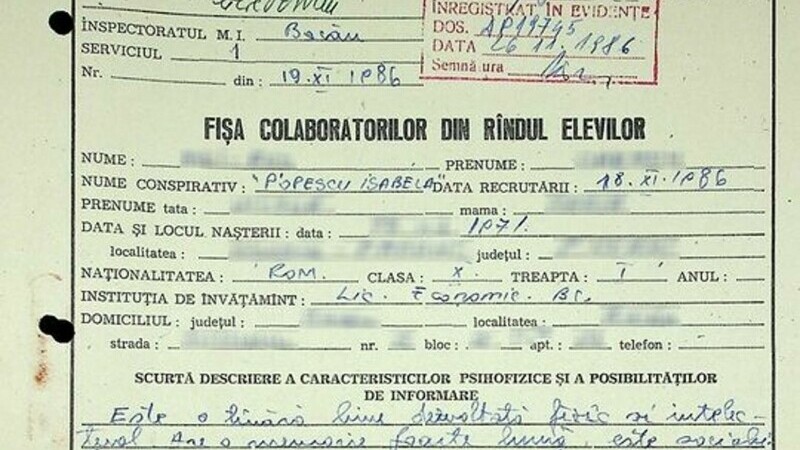 INSPECTORATUL M. I. Bacău
SERVICIUL 1
Nr. din : 19.XI.1986
ÎNREGISTRAT ÎN EVIDENȚE
DOS. AP19745
DATA 26 11. 1986
Semnătura
FIȘA COLABORATORILOR DIN RÎNDUL ELEVILOR
NUME : PRENUME :
NUME CONSPIRATIV : "POPESCU ISABELA" DATA RECRUTĂRII : 18.XI.1986
PRENUME tata : mama :
DATA ȘI LOCUL NAȘTERII : data : 1971.
localitatea județul :
NAȚIONALITATEA : ROM. CLASA : X. TREAPTA : I ANUL :
INSTITUȚIA DE ÎNVĂȚĂMÎNT : Lic. Economic. Bc.
DOMICILIUL : județul : localitatea :
strada : nr. bloc : apt. : telefon :
SCURTĂ DESCRIERE A CARACTERISTICILOR PSIHOFIZICE ȘI A POSIBILITĂȚILOR
DE INFORMARE
Este o tînără bine dezvoltată fizic și intelec-
tual. Are o memorie foarte bună, este sociabi